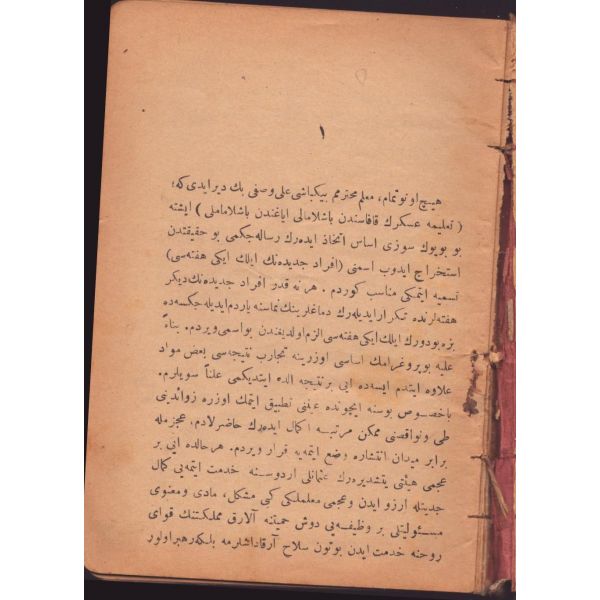 ١
هیچ اونوتمام، معلم محترمم بیكباشی علی وصفی بك دیر ایدی كه؛
(تعلیمه عسكرك قافاسندن باشلامالی ایاغندن باشلاماملی) ایشته
بو بویوك سوزی اساس اتخاذ ایدەرك رساله‌جكمی بو حقیقتدن
استخراج ایدوب اسمنی (افراد جدیده‌نك ایلك ایكی هفته‌سی)
تسمیه ایتمكی مناسب كوردم. هر نه قدر افراد جدیده‌نك دیكر
هفته‌لرنده تكرار ایدیله‌رك دماغلرینك نماسنه یاردم ایدیله‌جكسه‌ده
بزه بو دورك ایلك ایكی هفته‌سی الزم اولدیغندن بو اسمی ویردم. بناءً
علیه بو پروغرامك اساسی اوزرینه تجارب نتیجه‌سی بعض مواد
علاوه ایتدم ایسه‌ده ایی بر نتیجه الده ایتدیكمی علناً سویلرم.
باخصوص بو سنه ایچونده عینی تطبیق ایتمك اوزره زوائدینی
طی و نواقصنی ممكن مرتبه اكمال ایده‌رك حاضرلادم. عجزمله
برابر میدان انتشاره وضع ایتمه‌یه قرار ویردم. هر حالده ایی بر
عجمی هیئتی یتشدیره‌رك عثمانلی اردوسنه خدمت ایتمه‌یی كمال
جدیتله آرزو ایدن و عجمی معلملكی كبی مشكل، مادی و معنوی
مسئولیتلی بر وظیفه‌یی دوش حمیتنه آلارق مملكتنك قوای
روحنه خدمت ایدن بوتون سلاح آرقاداشلرمه بلكه رهبر اولور